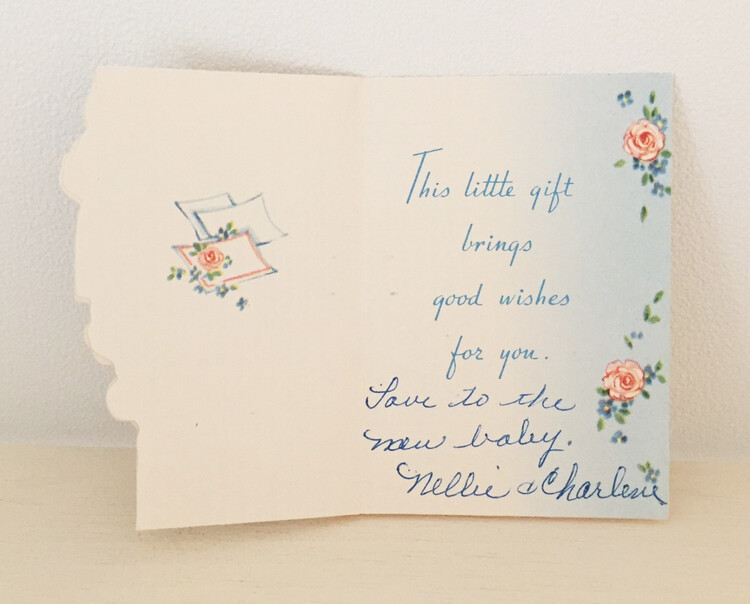 This little gift
brings
good wishes
for you.
Love to the
new baby.
Nellie & Charlene